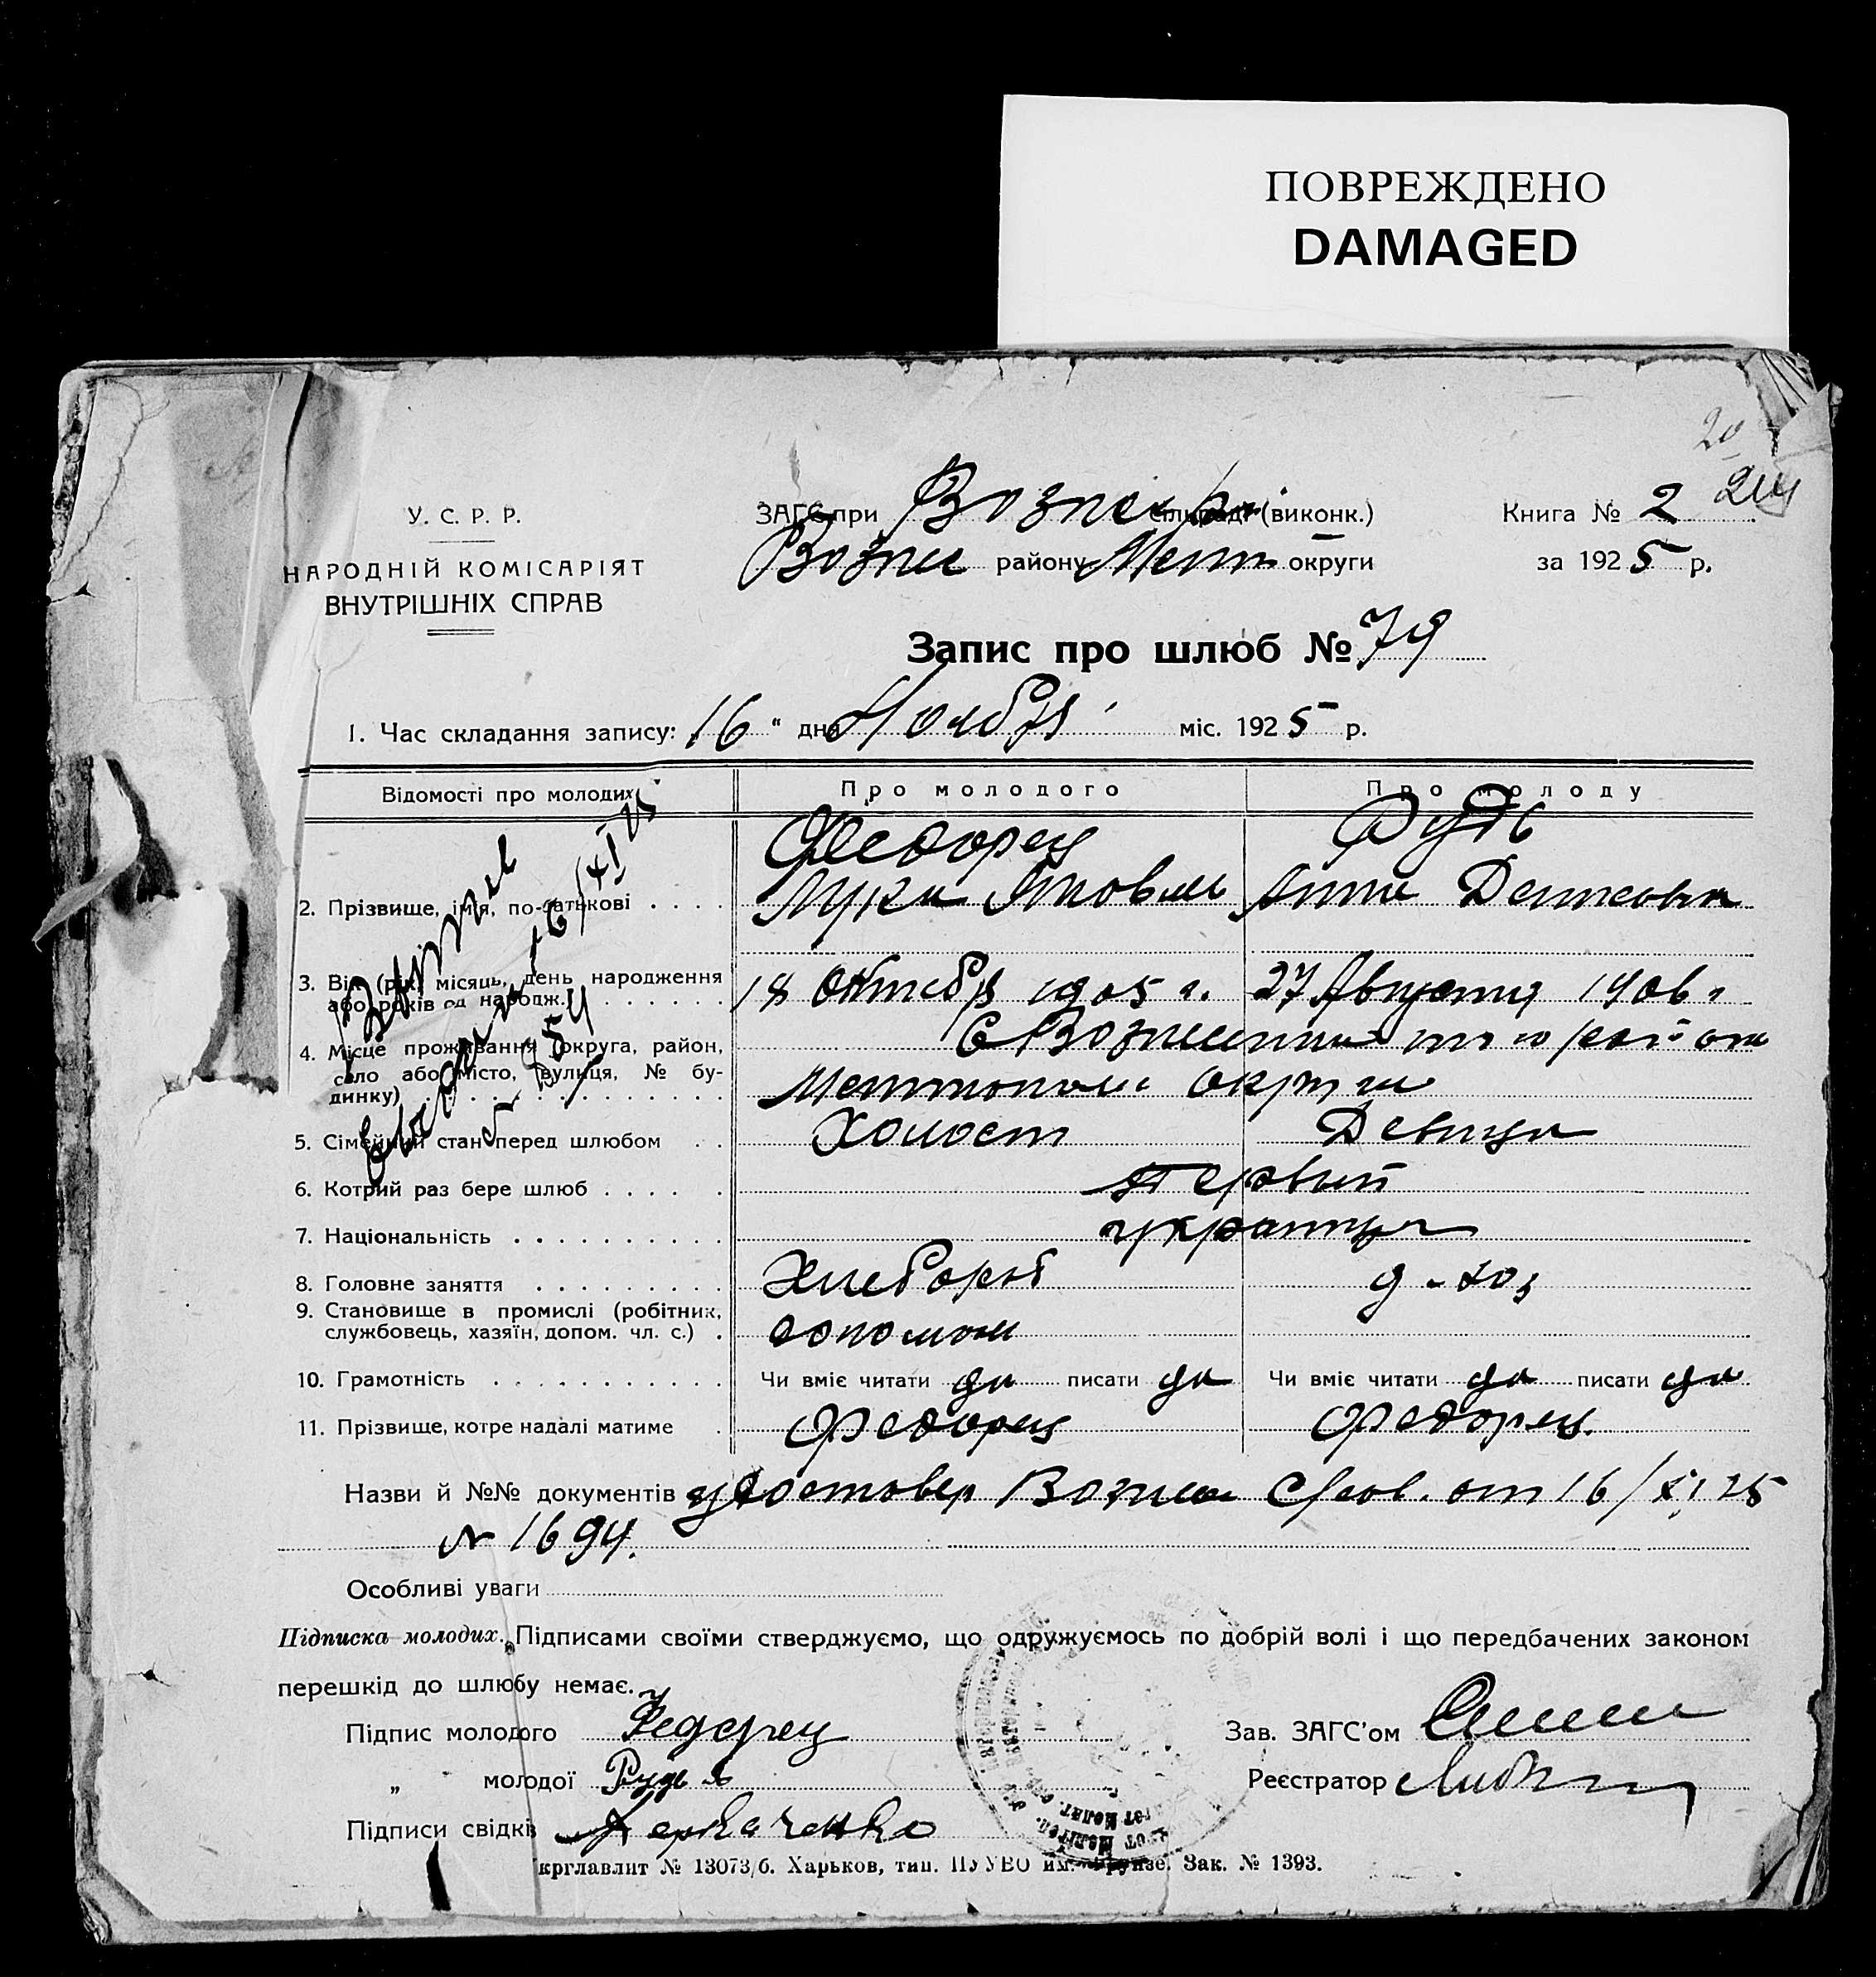 ПОВРЕЖДЕНО
DAMAGED
20
У. С. Р. Р.
НАРОДНІЙ КОМІСАРІЯТ
ВНУТРІШНІХ СПРАВ
ЗАГС при сільраді (виконк.)
району округи
Книга № 2
за 1925 р.
Запис про шлюб № 79
1. Час складання запису: 16 " дня Ноября міс. 1925 р.
Відомості про молодих
Про молодого
Про молоду
2. Прізвище, ім'я, по-батькові
Федорец
Лука Яковл
Рудь
Анна
3. Вік (рік, місяць, день народження
або років од народж.)
18 Октября 1905 г.
27 Августа 1906 г
4. Місце проживання (округа, район,
село або місто, вулиця, № бу-
динку)
округи
5. Сімейний стан перед шлюбом
Холост
Девица
6. Котрий раз бере шлюб
Первый
7. Національність
украинцы
8. Головне заняття
Хлебороб
д-хоз
9. Становище в промислі (робітник,
службовець, хазяїн, допом. чл. с.)
10. Грамотність
Чи вміє читати да писати да
Чи вміє читати да писати да
11. Прізвище, котре надалі матиме
Федорец
Федорец.
Назви й №№ документів удостовер от 16/XI 25
№ 1694.
Особливі уваги
Підписка молодих. Підписами своїми стверджуємо, що одружуємось по добрій волі і що передбачених законом
перешкід до шлюбу немає.
Підпис молодого Федорец
Зав. ЗАГС'ом
„ молодої Рудь
Реєстратор
Підписи свідків Деркаченко
крглавлит № 13073/б. Харьков, тип. ПУУВО им. Фрунзе. Зак. № 1393.